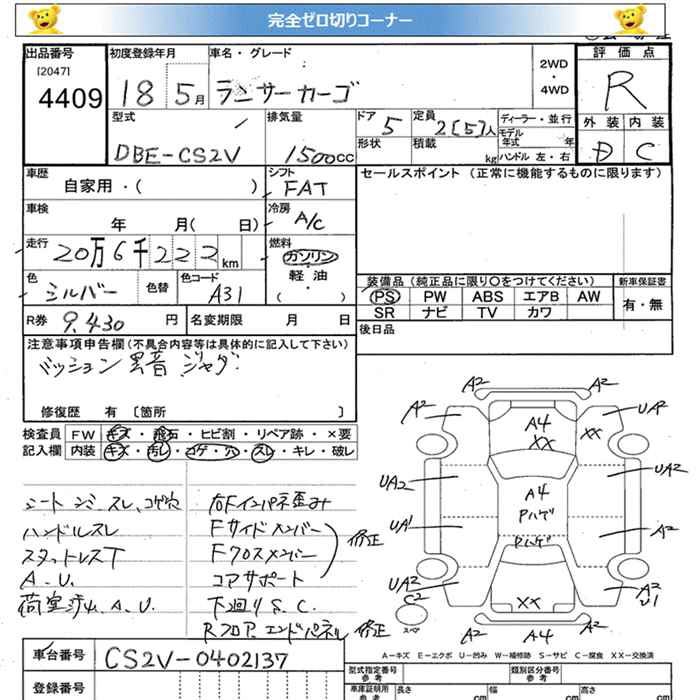 完全ゼロ切りコーナー
出品番号 初度登録年月 車名・グレード 2WD・4WD 評価点
[2047]
4409 18 5月 ランサーカーゴ R
型式 排気量 ドア 5 定員 2[5]人 ディーラー・並行 外装 内装
モデル年式 年
DBE-CS2V 1500cc 形状 積載 kg ハンドル 左・右 D C
車歴 シフト セールスポイント (正常に機能するものに限ります)
自家用・( ) FAT
車検 冷房
年 月( 日) A/C
走行 燃料
20万6千222km ガソリン
軽油
( ・ )
色 色替 色コード 装備品 (純正品に限り○をつけてください) 新車保証書
シルバー A31 PS PW ABS エアB AW 有・無
SR ナビ TV カワ
R券 9,430 円 名変期限 月 日 後日品
注意事項申告欄 (不具合内容等は具体的に記入して下さい)
ミッション異音 ジャダー
修復歴 有 [箇所 ]
検査員 FW キズ・飛石・ヒビ割・リペア跡・×要
記入欄 内装 キズ・汚レ・コゲ・穴・スレ・キレ・破レ
シートシミ、スレ、コゲ穴 右Fインパネ歪み
ハンドルスレ Fサイドメンバー
スタットレスT Fクロスメンバー 修正
A.U. コアサポート
荷室 A.U. 下廻りS.C.
Rフロア エンドパネル 修正
A2 A2
A2 A4 UA2
XX XX
UA2 A4 UA2
Pハゲ
UA1 Pハゲ A2
UA2 A2
C2 XX U1
スペア
A2 A4 A2
A-キズ E-エクボ U-凹み W-補修跡 S-サビ C-腐食 XX-交換済
車台番号 CS2V-0402137
登録番号 型式指定番号 類別区分番号
車庫証明用参考 長さ cm 幅 cm 高さ cm